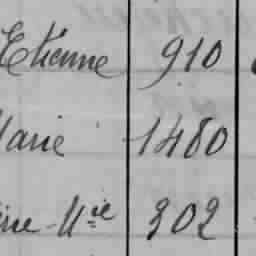 Etienne 910
Marie 1480
ine Mie 302